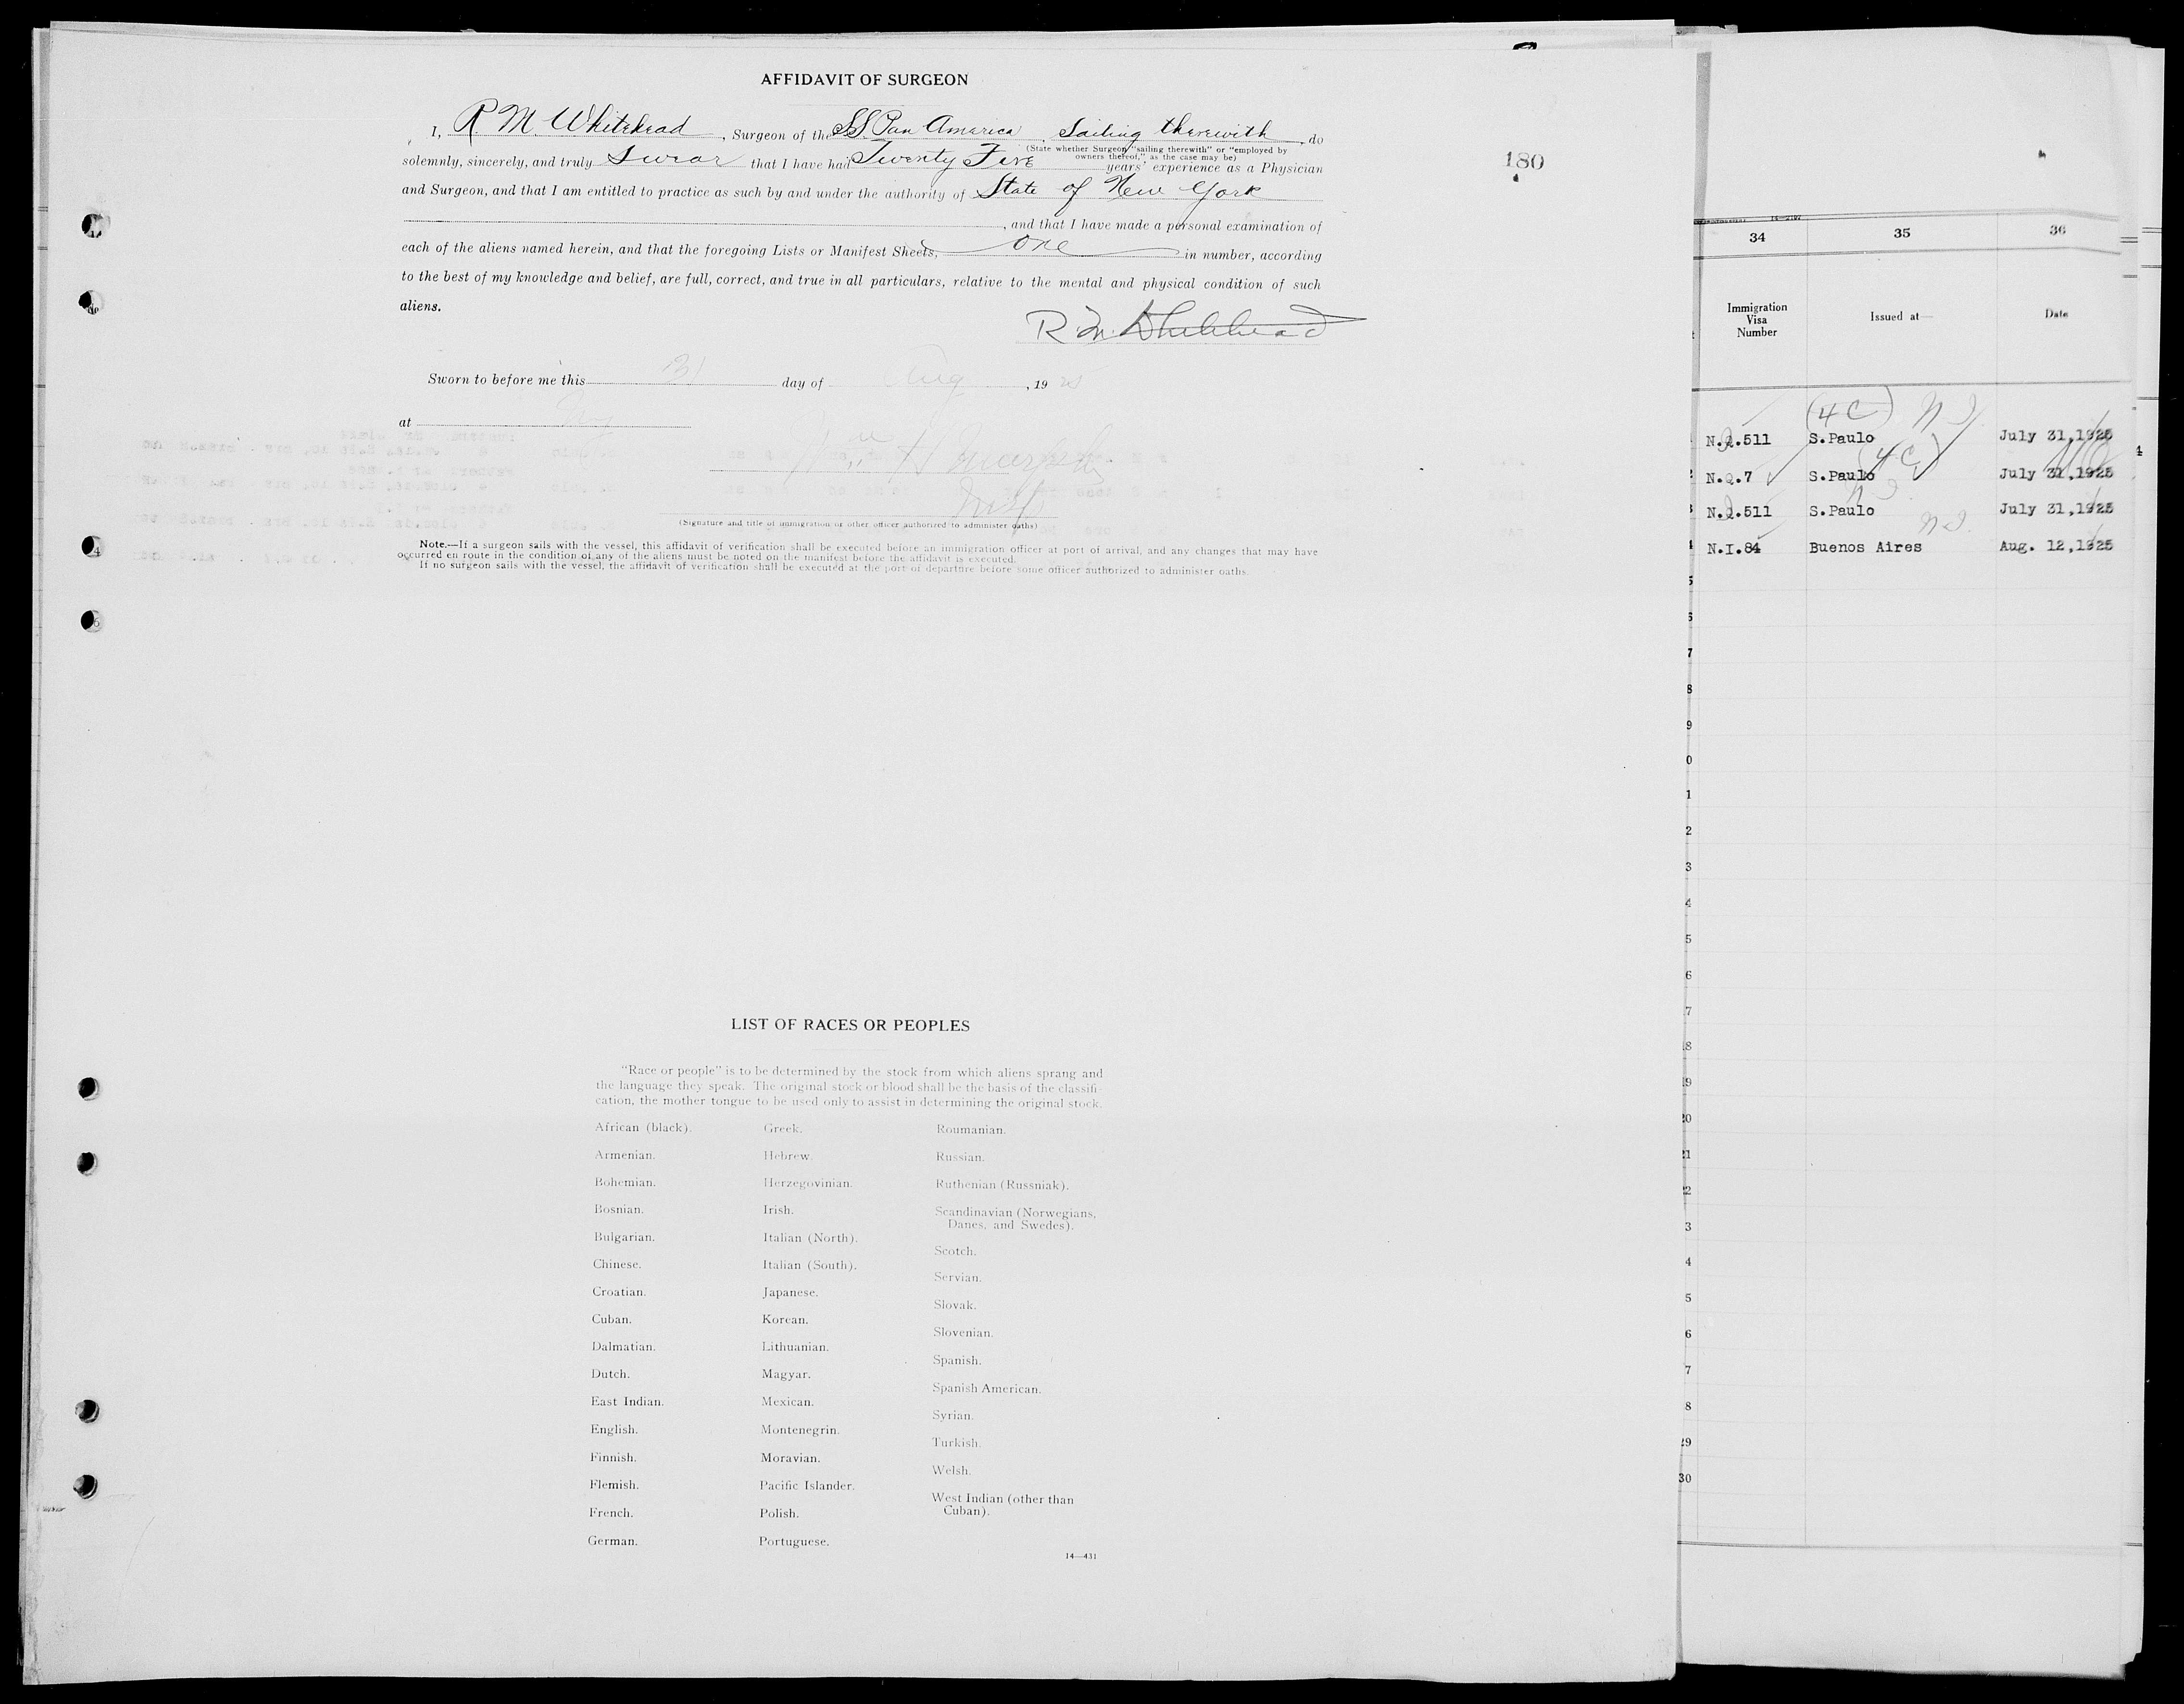 AFFIDAVIT OF SURGEON
I, R. M. Whitehead, Surgeon of the SS. Pan America, Sailing therewith, do
(State whether Surgeon "sailing therewith" or "employed by
owners thereof," as the case may be)
solemnly, sincerely, and truly swear that I have had Twenty Five years' experience as a Physician
and Surgeon, and that I am entitled to practice as such by and under the authority of State of New York
, and that I have made a personal examination of
each of the aliens named herein, and that the foregoing Lists or Manifest Sheets, one in number, according
to the best of my knowledge and belief, are full, correct, and true in all particulars, relative to the mental and physical condition of such
aliens.
R. M. Whitehead
Sworn to before me this 31 day of Aug, 19
at
(Signature and title of immigration or other officer authorized to administer oaths)
Note.—If a surgeon sails with the vessel, this affidavit of verification shall be executed before an immigration officer at port of arrival, and any changes that may have
occurred en route in the condition of any of the aliens must be noted on the manifest before the affidavit is executed.
If no surgeon sails with the vessel, the affidavit of verification shall be executed at the port of departure before some officer authorized to administer oaths.
180
LIST OF RACES OR PEOPLES
"Race or people" is to be determined by the stock from which aliens sprang and
the language they speak. The original stock or blood shall be the basis of the classifi-
cation, the mother tongue to be used only to assist in determining the original stock.
African (black).
Armenian.
Bohemian.
Bosnian.
Bulgarian.
Chinese.
Croatian.
Cuban.
Dalmatian.
Dutch.
East Indian.
English.
Finnish.
Flemish.
French.
German.
Greek.
Hebrew.
Herzegovinian.
Irish.
Italian (North).
Italian (South).
Japanese.
Korean.
Lithuanian.
Magyar.
Mexican.
Montenegrin.
Moravian.
Pacific Islander.
Polish.
Portuguese.
Roumanian.
Russian.
Ruthenian (Russniak).
Scandinavian (Norwegians,
Danes, and Swedes).
Scotch.
Servian.
Slovak.
Slovenian.
Spanish.
Spanish American.
Syrian.
Turkish.
Welsh.
West Indian (other than
Cuban).
14—431
34 35 36
Immigration
Visa
Number
Issued at—
Date
(4 C)
N.Q.511 S.Paulo July 31,1925
(4 C)
N.Q.7 S.Paulo July 31,1925
N.Q.511 S.Paulo July 31,1925
N.I.84 Buenos Aires Aug. 12,1925
5
6
7
8
9
0
1
2
3
4
5
6
7
8
9
20
21
22
3
4
5
6
7
8
29
30